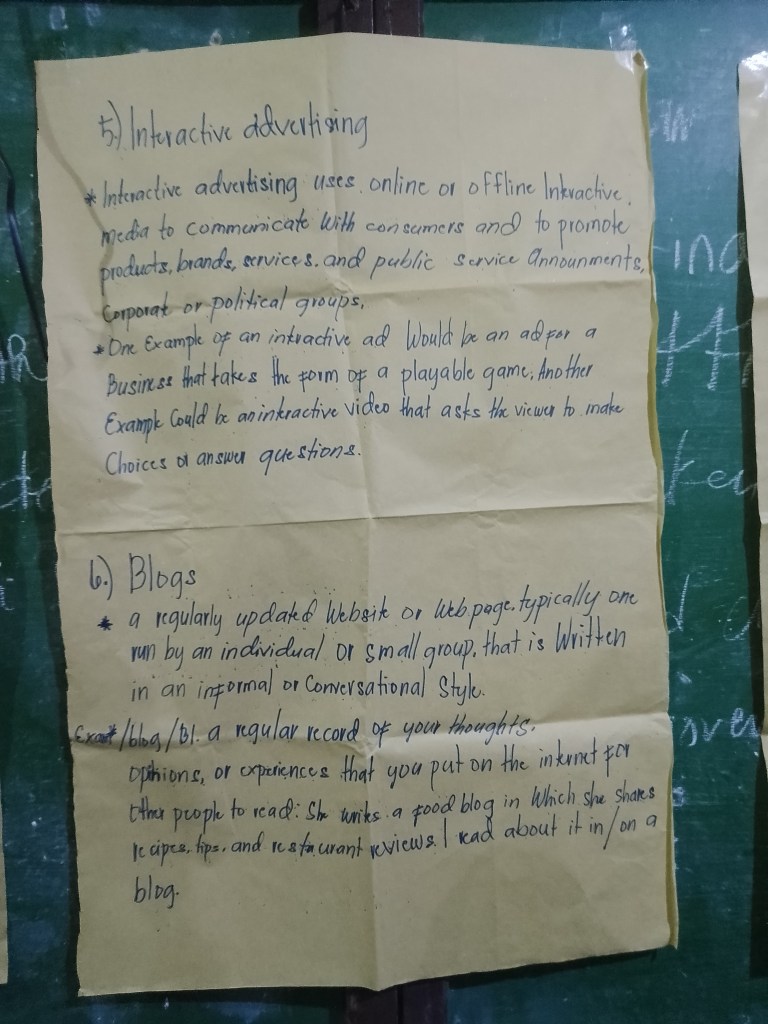 5.) Interactive advertising
* Interactive advertising uses online or offline Interactive
media to communicate with consumers and to promote
products, brands, services. and public service Announments,
Corporate or political groups.
* One Example of an interactive ad Would be an ad for a
Business that takes the form of a playable game. Another
Example Could be an interactive video that asks the viewer to make
Choices or answer questions.
6.) Blogs
* a regularly updated Website or Web page. typically one
run by an individual or small group. that is Written
in an informal or Conversational Style.
/blog/Bl. a regular record of your thoughts.
Opinions, or experiences that you put on the internet for
Other people to read: She writes a food blog in Which she shares
recipes, tips, and restaurant reviews. I read about it in/on a
blog.